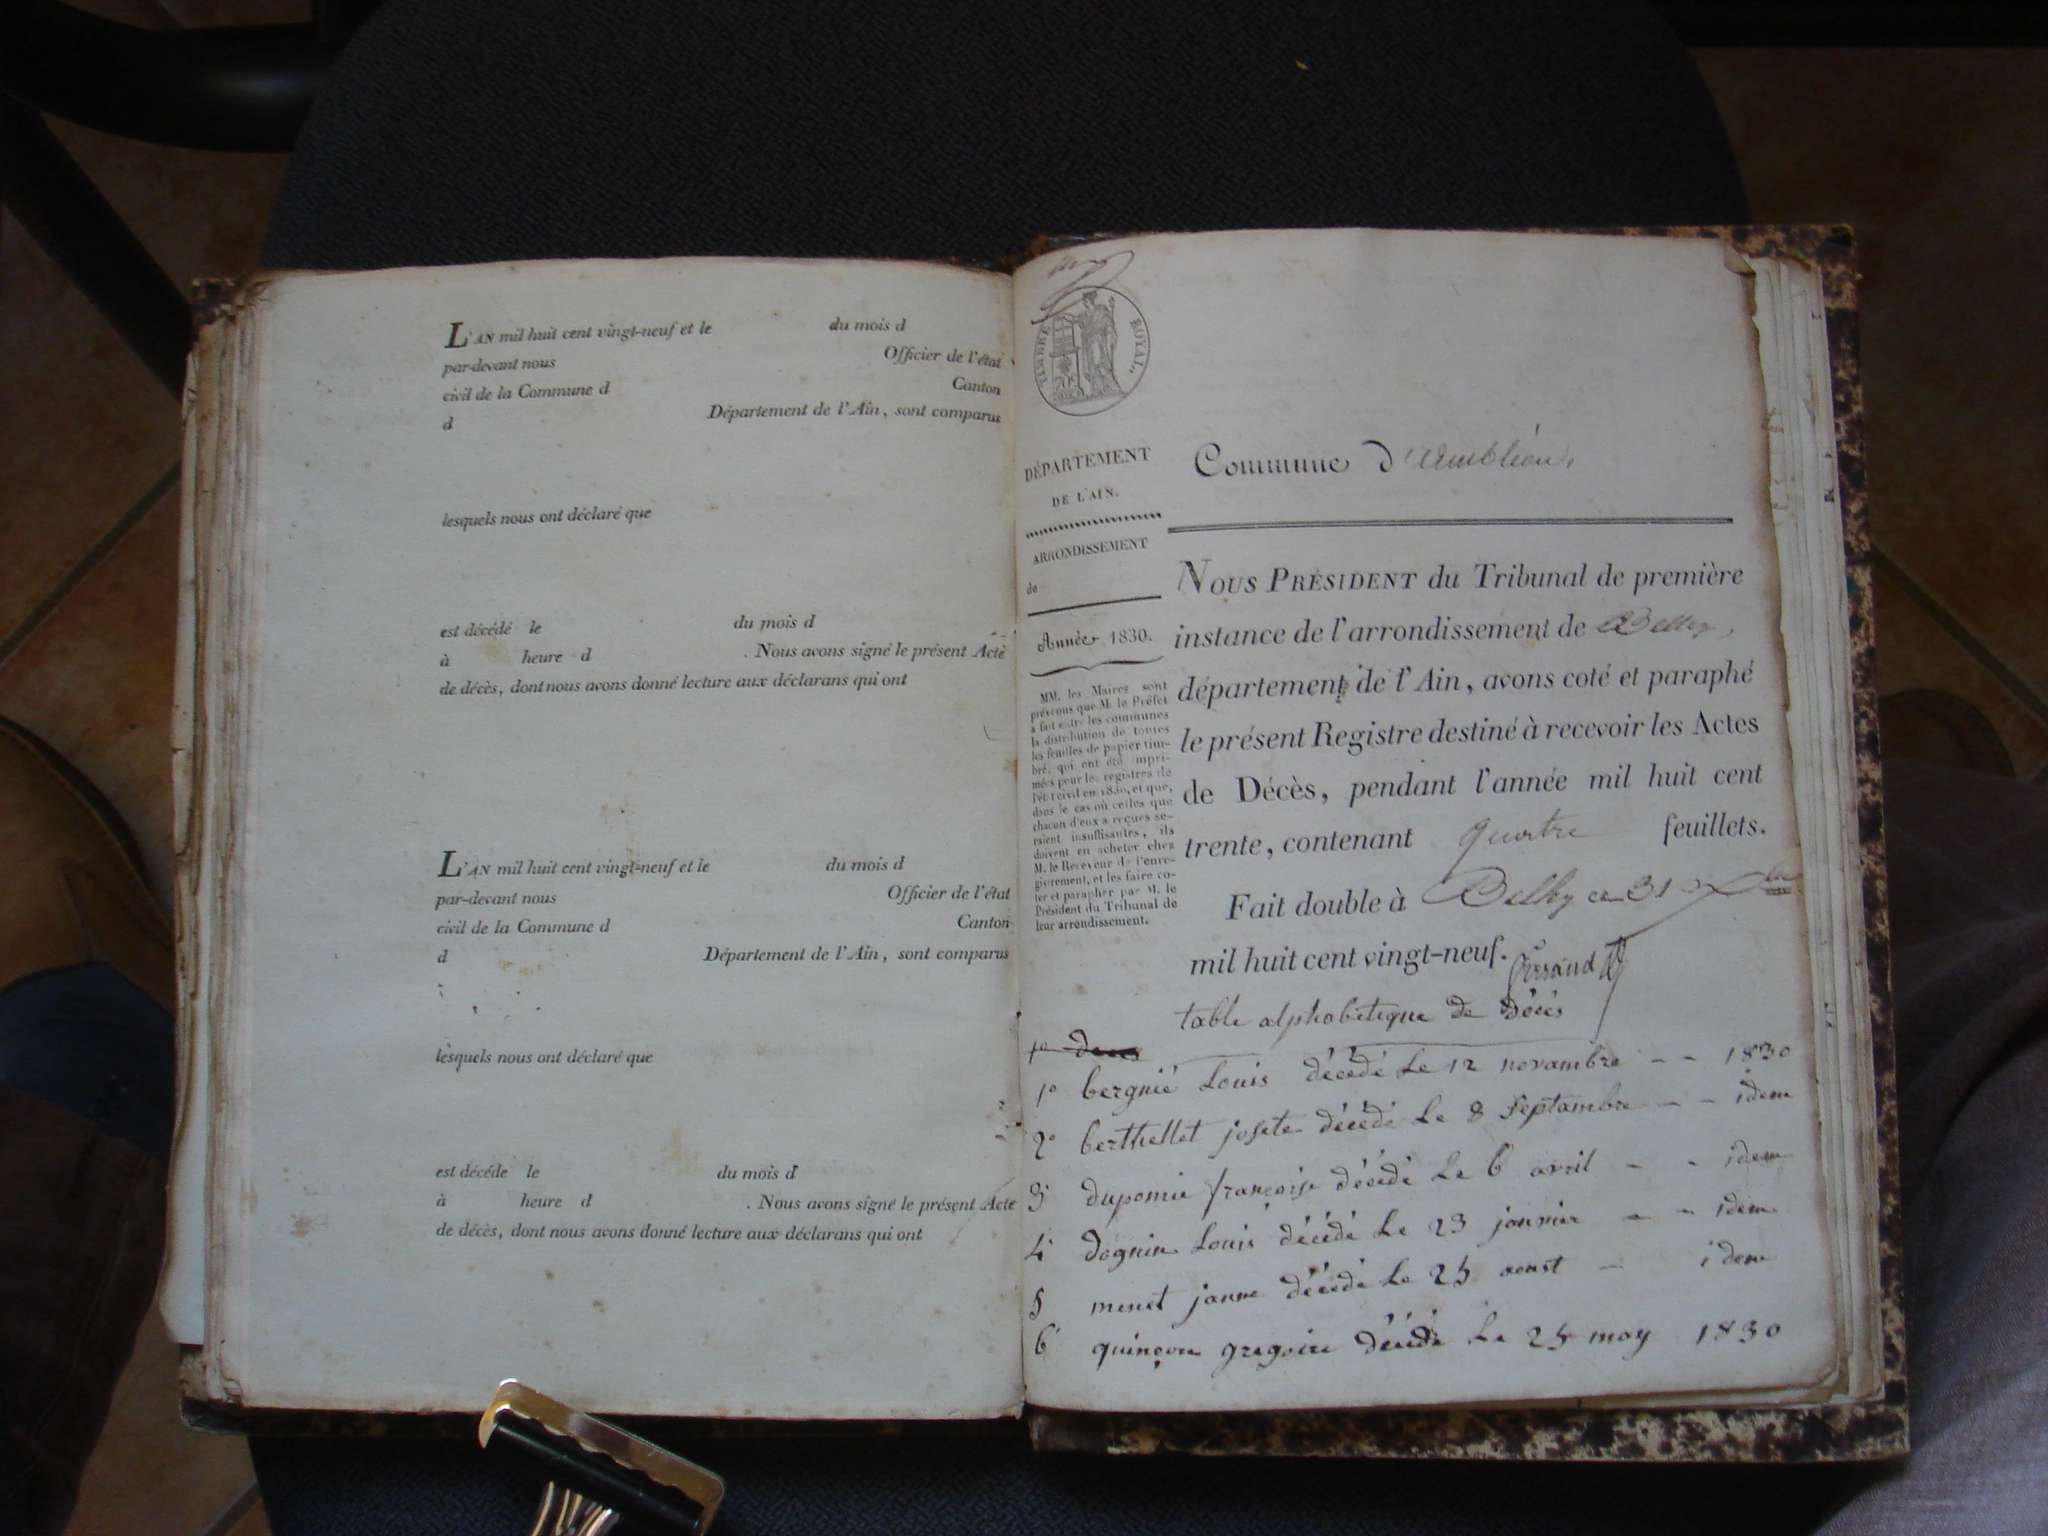 L'AN mil huit cent vingt-neuf et le du mois d
par-devant nous Officier de l'état
civil de la Commune d Canton
d Département de l'Ain, sont comparus
lesquels nous ont déclaré que
est décédé le du mois d
à heure d . Nous avons signé le présent Acte
de décès, dont nous avons donné lecture aux déclarans qui ont
L'AN mil huit cent vingt-neuf et le du mois d
par-devant nous Officier de l'état
civil de la Commune d Canton
d Département de l'Ain, sont comparus
lesquels nous ont déclaré que
est décédé le du mois d
à heure d . Nous avons signé le présent Acte
de décès, dont nous avons donné lecture aux déclarans qui ont
TIMBRE ROYAL.
DÉPARTEMENT
DE L'AIN.
ARRONDISSEMENT
de
Année 1830.
MM. les Maires sont
prévenus que M. le Préfet
a fait entre les communes
la distribution de toutes
les feuilles de papier tim-
bré, qui ont été impri-
mées pour les registres de
l'état civil en 1830, et que,
dans le cas où celles que
chacun d'eux a reçues se-
raient insuffisantes, ils
doivent en acheter chez
M. le Receveur de l'enre-
gistrement, et les faire co-
ter et parapher par M. le
Président du Tribunal de
leur arrondissement.
Commune d'ambléon,
NOUS PRÉSIDENT du Tribunal de première
instance de l'arrondissement de Belley,
département de l'Ain, avons coté et paraphé
le présent Registre destiné à recevoir les Actes
de Décès, pendant l'année mil huit cent
trente, contenant quatre feuillets.
Fait double à Belley ce 31
mil huit cent vingt-neuf.
table alphabetique de décés
1° bergnié Louis décédé Le 12 novambre - - 1830
2° berthellet josete décédé Le 8 septambre - - idem
3 dupomié françoise décédé Le 6 avril - - idem
4 dognin Louis décédé Le 23 janvier - - idem
5 menet janne décédé Le 25 aoust - idem
6 quinçon gregoire décédé Le 25 may 1830